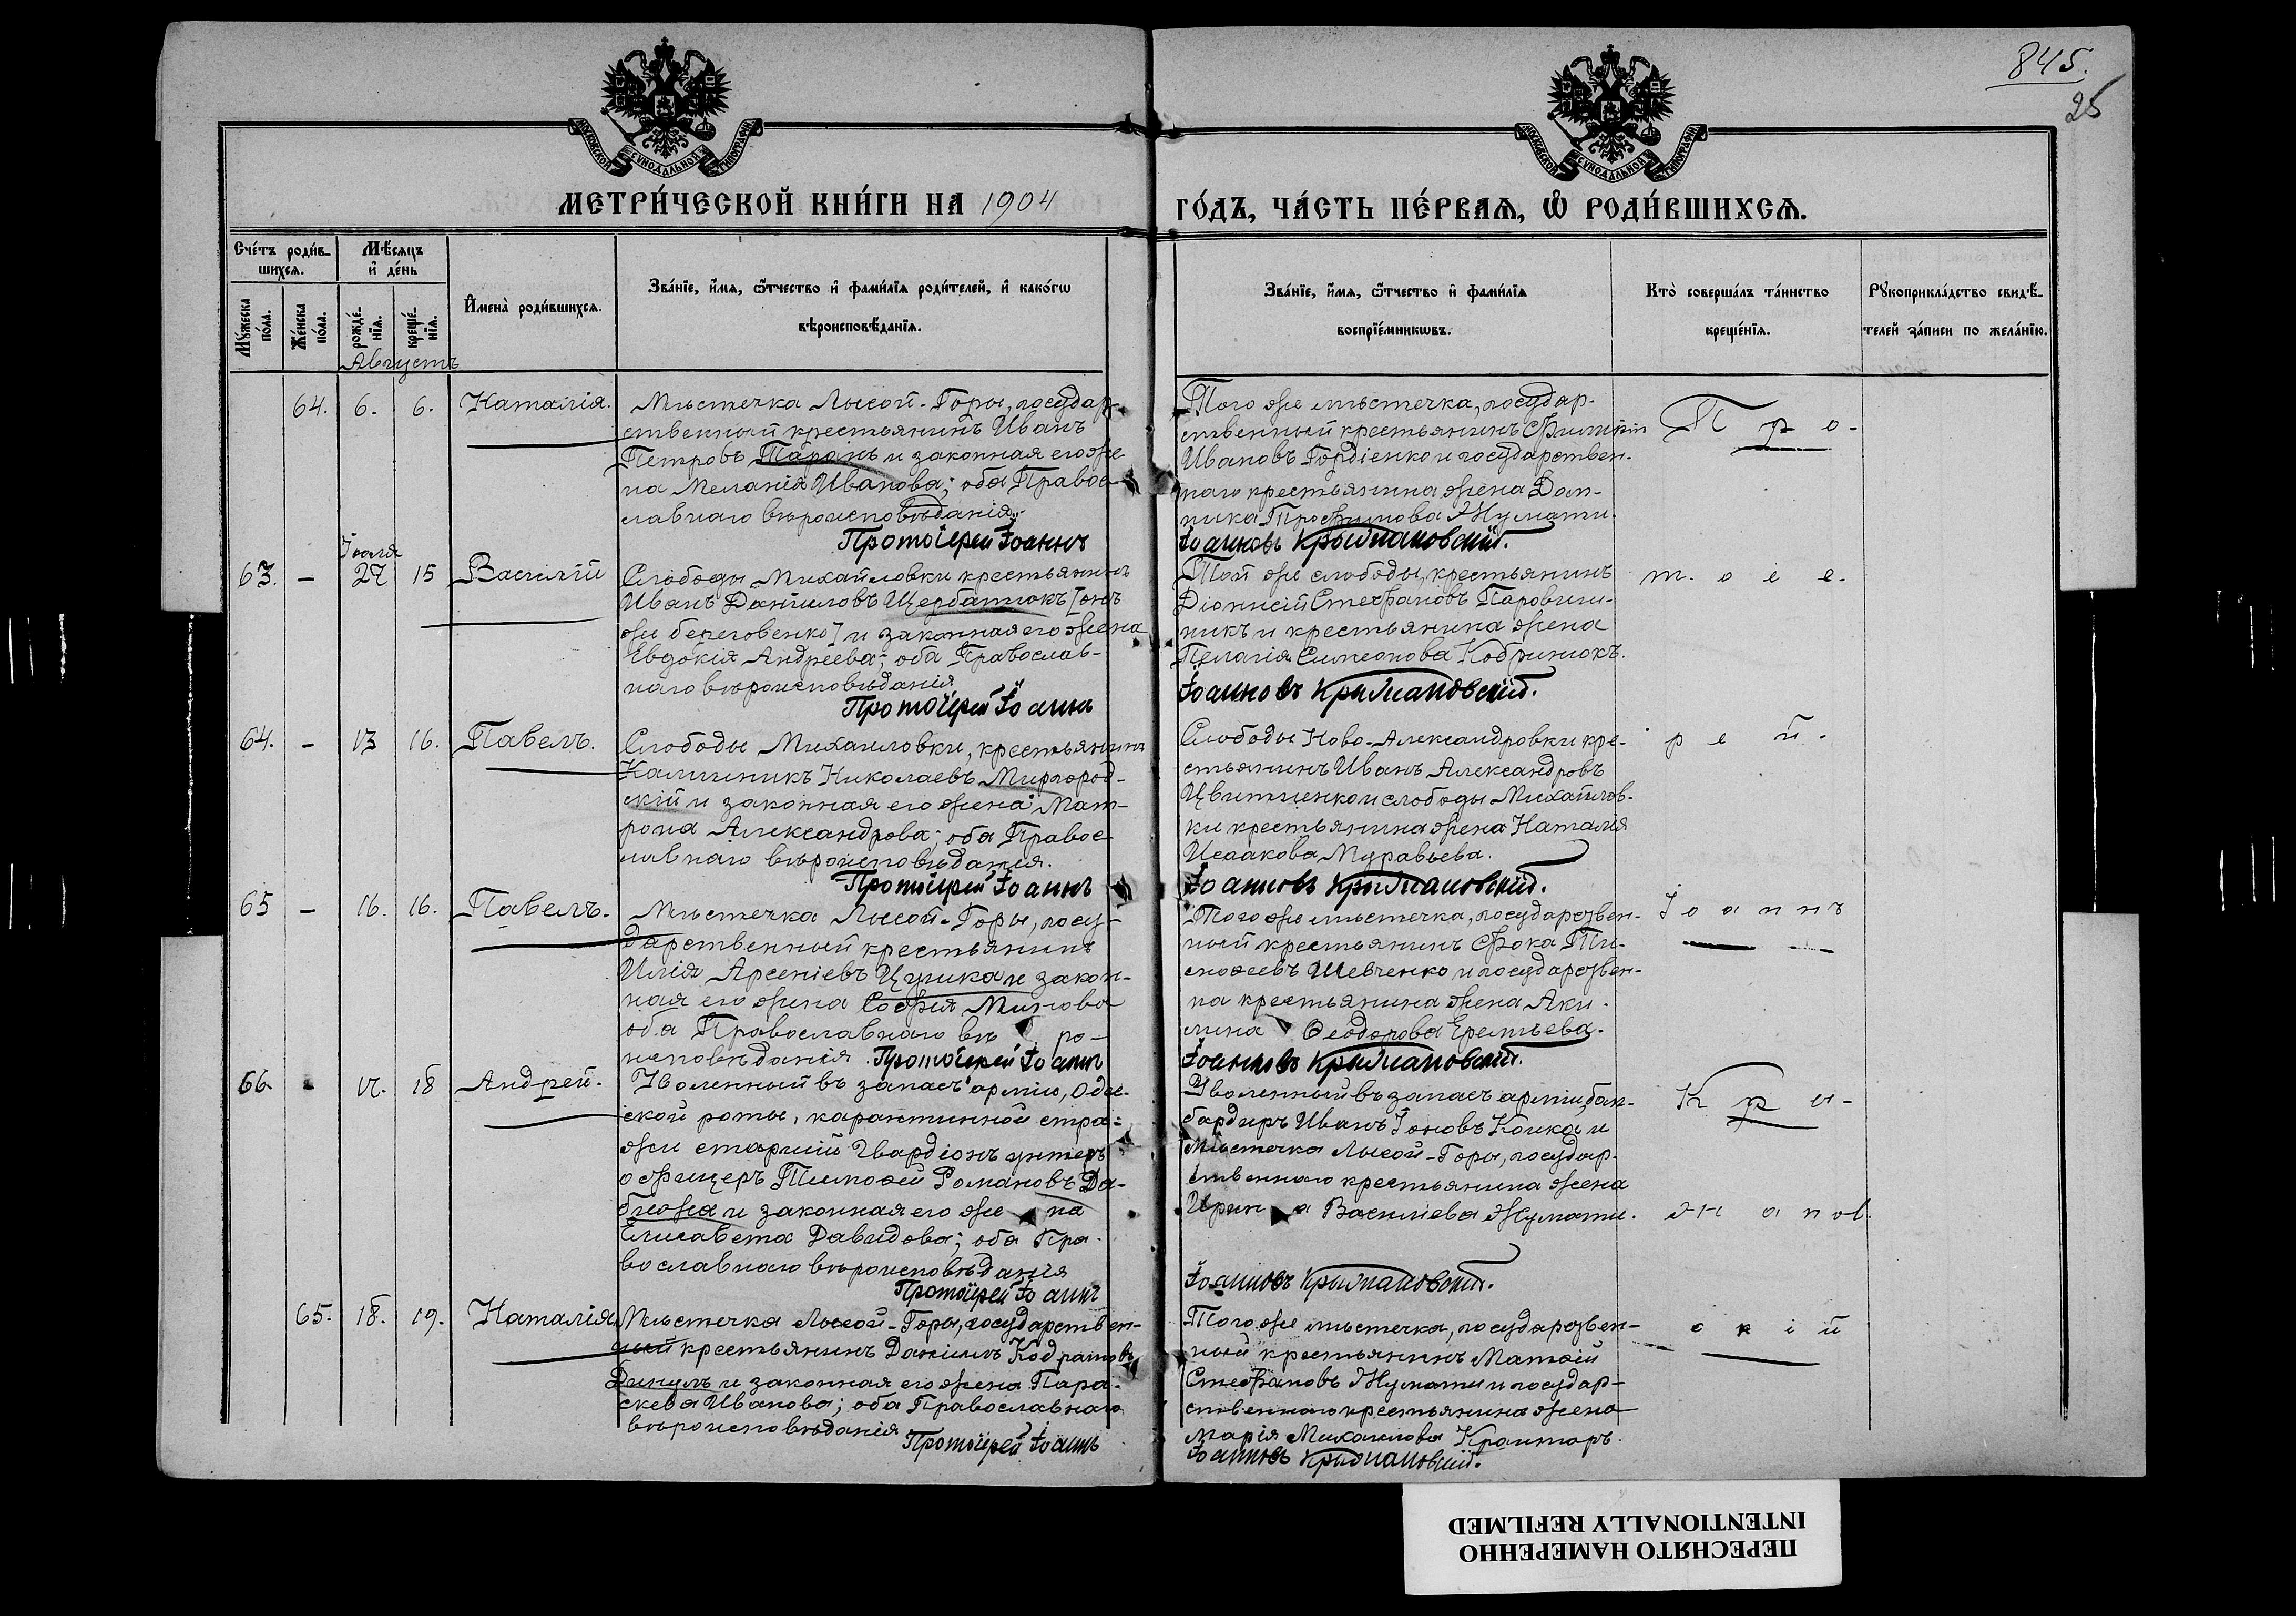 845.
25
МОСКОВСКОЙ СУНОДАЛЬНОЙ ТИПОГРАФІИ
МОСКОВСКОЙ СУНОДАЛЬНОЙ ТИПОГРАФІИ
МЕТРИ́ЧЕСКОЙ КНИ́ГИ НА 1904
ГО́ДЪ, ЧА́СТЬ ПЕ́РВАЯ, Ѡ РОДИ́ВШИХСЯ.
Сче́тъ роди́в-
шихся.
Мѣ́сяцъ
и де́нь
Му́жеска по́ла.
Же́нска по́ла.
рожде́-
нїя.
креще́-
нїя.
Имена̀ роди́вшихся.
Зва́нїе, и́мя, ѻ́тчество и фами́лїя роди́телей, и како́гѡ
вѣроисповѣ́данїя.
Зва́нїе, и́мя, ѻ́тчество и фами́лїя
воспрїе́мникѡвъ.
Кто̀ соверша́лъ та́инство
креще́нїя.
Рукоприкла́дство свидѣ́-
телей за́писи по жела́нїю.
Августъ
64. 6. 6. Наталія.
Мѣстечка Лысой-Горы, государ-
ственный крестьянинъ Иванъ
Петровъ Таранъ и законная его же
на Меланія Иванова; оба Правос
славнаго вѣроисповѣданія.
Протоіерей Іоаннъ
Того же мѣстечка, государ-
ственный крестьянинъ Филиппъ
Ивановъ Гордіенко и государствен-
наго крестьянина жена Дом-
ника Трофимова Жумати.
Іоанновъ Крыжановскій.
Про-
Іюля
63. – 27 15 Василій
Слободы Михайловки крестьянинъ
Иванъ Даниловъ Щербатюкъ [онъ
же береговенко] и законная его жена
Евдокія Андреева; оба Православ-
наго вѣроисповѣданія
Протоіерей Іоаннъ
Той же слободы, крестьянинъ
Діонисій Стефановъ
и крестьянина жена
Пелагія Симеонова Кобринюкъ.
Іоанновъ Крыжановскій.
т. о і е.
64. – 13 16. Павелъ.
Слободы Михаиловки, крестьянинъ
Калинникъ Николаевъ Миргород-
скій и законная его жена Мат-
рона Александрова; оба Правос
лавнаго вѣроисповѣданія.
Протоіерей Іоаннъ
Слободы Ново-Александровки кре-
стьянинъ Иванъ Александровъ
и слободы Михайлов-
ки крестьянина жена Наталія
Исаакова Муравьева.
Іоанновъ Крыжановскій.
р е й.
65 – 16. 16. Павелъ.
Мѣстечка Лысой-Горы, госу-
дарственный крестьянинъ
Илія Арсеніевъ Цуика и закон-
ная его жена Софія Минова
оба Православнаго вѣ ро-
исповѣданія. Протоіерей Іоаннъ
Того же мѣстечка, государствен-
ный крестьянинъ Фока Ти-
моѳеевъ Шевченко и государствен-
на крестьянина жена Аки-
лина Ѳеодорова Еремьева.
Іоанновъ Крыжановскій.
І о а н н ъ
66. - 17. 18 Андрей.
Уволенный въ запасъ арміи, Одес-
ской роты, карантинной стра-
жи старшій Гвардіонъ унтеръ
офицеръ Тимоѳей Романовъ Да-
бижа и законная его же на
Елисавета Давидова; оба Пра-
вославнаго вѣроисповѣданія
Протоіерей Іоаннъ
Уволенный въ запасъ арміи, бом-
бардиръ Иванъ Іоновъ и
мѣстечка Лысой-Горы, государ-
ственнаго крестьянина жена
Ирин а Василіева Жумати.
Іоанновъ Крыжановскій.
К р ы-
ж а н ов.
65. 18. 19. Наталія
Мѣстечка Лысой-Горы, государствен-
ный крестьянинъ Даніилъ Кодратовъ
Дикулъ и законная его жена Пара-
скева Иванова; оба Православнаго
вѣроисповѣданія
Протоіерей Іоаннъ
Того же мѣстечка, государствен-
ный крестьянинъ Матѳій
Стефановъ Жумати и государ-
ственнаго крестьянина жена
Марія Михаилова Крантарь.
Іоанновъ Крыжановскій.
с к і й
ПЕРЕСНЯТО НАМЕРЕННО
INTENTIONALLY REFILMED